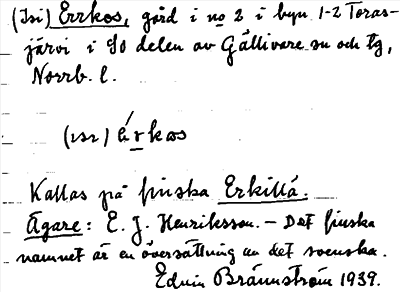 (Isi) Errkos, gård i no 2 i byn 1-2 Toras-
järvi i SO delen av Gällivare sn och tg,
Norrb. l.
(ɪsɪ) ǽrkos
Kallas på finska Erkillä.
Ägare: E. J. Henriksson. – Det finska
namnet är en översättning av det svenska.
Edvin Brännström 1939.